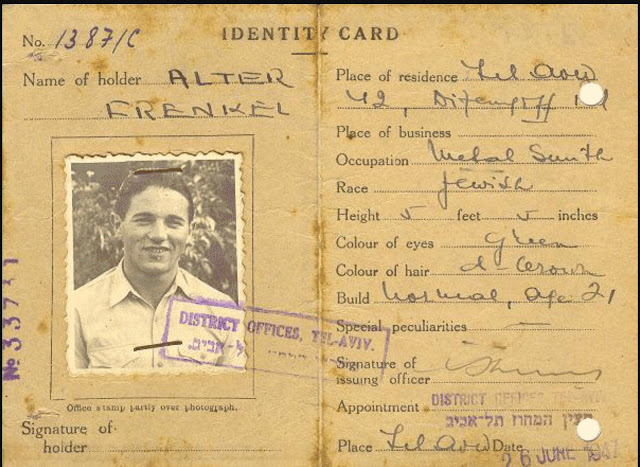 IDENTITY CARD
No. 1387/C
Name of holder ALTER
FRENKEL
No 33731
DISTRICT OFFICES, TEL-AVIV.
Office stamp partly over photograph.
Signature of
holder
Place of residence Tel Aviv
42, Dizengoff Rd
Place of business
Occupation Metal Smith
Race Jewish
Height 5 feet 5 inches
Colour of eyes Green
Colour of hair d-brown
Build Normal, age 21
Special peculiarities —
Signature of
issuing officer
Appointment DISTRICT OFFICES TEL-AVIV
קצין המחוז תל-אביב
Place Tel Aviv Date 26 JUNE 1947